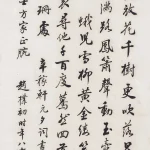 放花千樹更吹落
滿路鳳簫聲動玉
蛾兒雪柳黃金縷
尋他千百度驀然回
珊處 辛稼軒元夕詞書
士方家正腕 趙樸初時年八